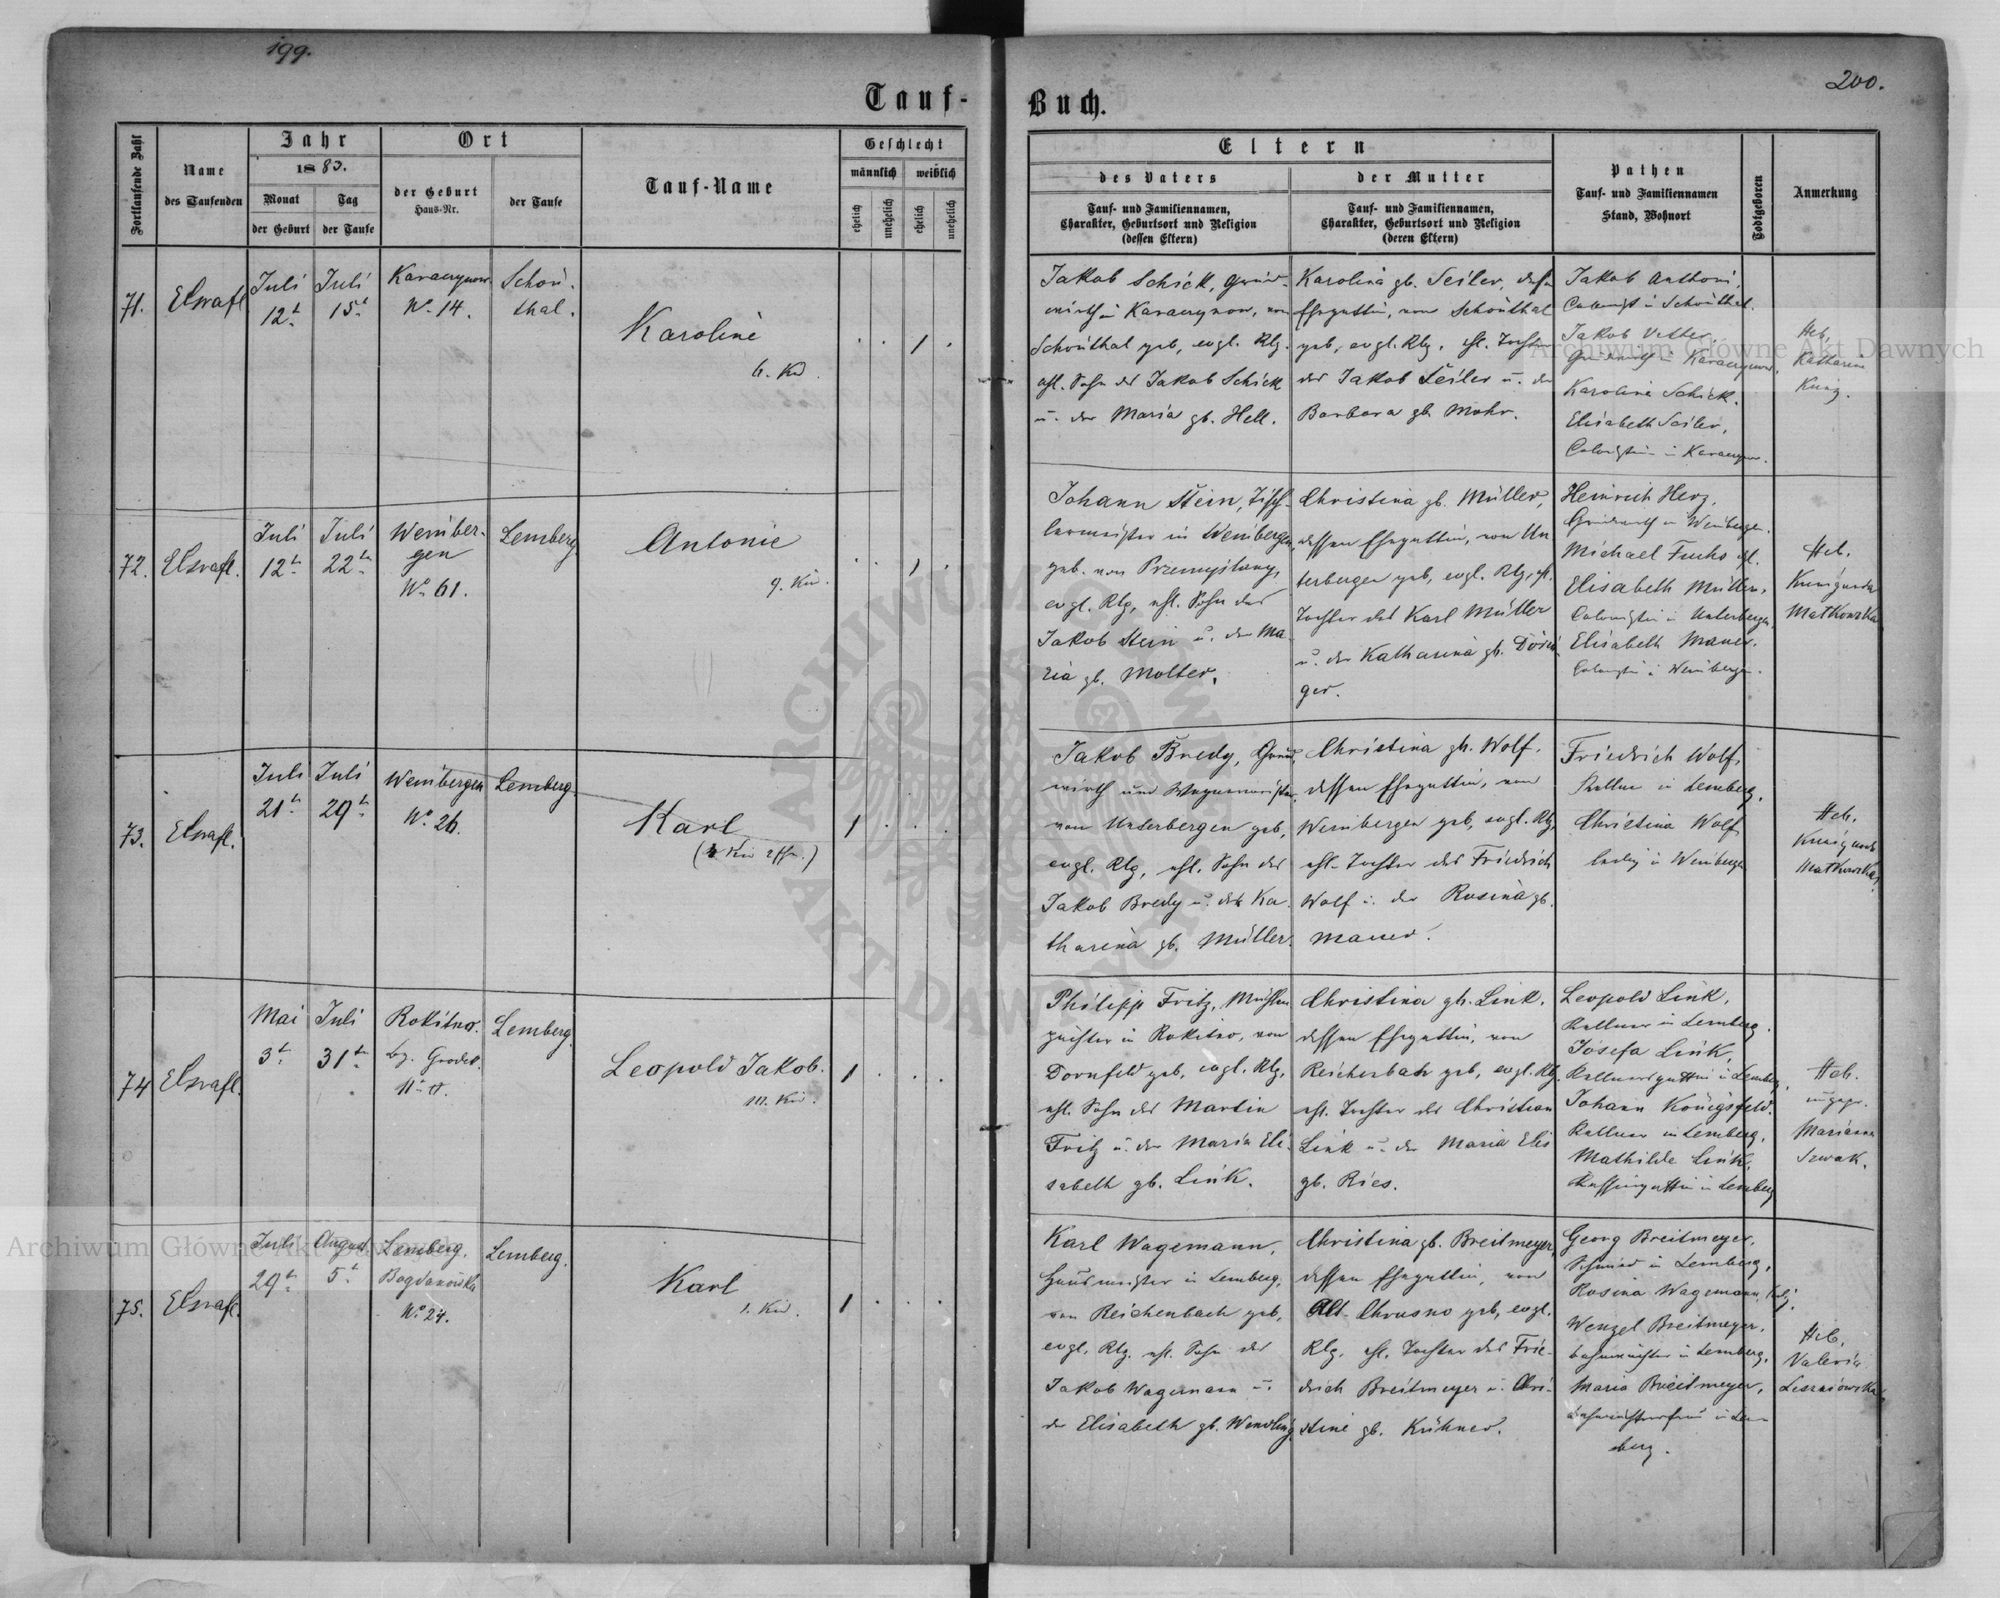 199.
Tauf-
Fortlaufende Zahl
Name
des Taufenden
Jahr
1883.
Monat
der Geburt
Tag
der Taufe
Ort
der Geburt
Haus-Nr.
der Taufe
Tauf-Name
Geschlecht
männlich
weiblich
ehelich
unehelich
ehelich
unehelich
71.
Juli
12t
Juli
15t
No. 14.
Schön-
thal.
Karoline
6. Kd.
1
72.
Juli
12t
Juli
22tn
Weinber-
gen
No. 61.
Lemberg
Antonie
9. Kd.
1
73.
Juli
21t
Juli
29tn
Weinbergen
No. 26.
Lemberg.
Karl
1
74
Mai
3t
Juli
31tn
Rokitno.
bz. Grodek.
Lemberg.
Leopold Jakob.
10. Kd.
1
75.
Juli
29tn
August
5t
Lemberg.
Bogdanówka
No. 24.
Lemberg.
Karl
1. Kd.
1
Buch.
200.
Eltern
des Vaters
Tauf- und Familiennamen,
Charakter, Geburtsort und Religion
(dessen Eltern)
der Mutter
Tauf- und Familiennamen,
Charakter, Geburtsort und Religion
(deren Eltern)
Pathen
Tauf- und Familiennamen
Stand, Wohnort
Todtgeboren
Anmerkung
Jakob Schick, Grund-
wirth in
Schönthal geb, evgl. Rlg.
ehl. Sohn des Jakob Schick
u. der Maria gb. Hell.
Karolina gb. Seiler, dessen
Ehegattin, von Schönthal
geb, evgl. Rlg. ehl. Tochter
des Jakob Seiler u. der
Barbara gb. Mohr.
Jakob Anthoni,
Colonist in Schönthal.
Jakob Vetter,
Grundwirth in
Karoline Schick.
Elisabeth Seiler,
Heb.
Katharine
Johann Stein, Tisch-
lermeister in Weinbergen,
geb. von Przemyślany,
evgl. Rlg, ehl. Sohn des
Jakob Stein u. der Ma-
ria gb. Molter.
Christina gb. Müller,
dessen Ehegattin, von Un
terbergen geb, evgl. Rlg, ehl.
Tochter des Karl Müller
u. der Katharina gb.
ger.
Heinrich Herz,
Grundwirth in Weinbergen.
Michael Fuchs
Elisabeth Müller,
Colonistin in Unterbergen,
Elisabeth Mauer,
in Weinbergen.
Heb.
Kunigunda
Matkowska
Jakob Bredy, Grund-
wirth und Wagnermeister,
von Unterbergen geb,
evgl. Rlg, ehl. Sohn des
Jakob Bredy u. der Ka-
tharina gb. Müller.
Christina gb. Wolf,
dessen Ehegattin, von
Weinbergen geb, evgl. Rlg,
ehl. Tochter des Friedrich
Wolf u. der Rosina gb.
Mauer.
Friedrich Wolf,
Kellner in Lemberg,
Christina Wolf
ledig in Weinbergen
Heb.
Kunigunda
Matkowska,
Philipp Fritz, Mühlen
pächter in Rokitno, von
Dornfeld geb, evgl. Rlg,
ehl. Sohn des Martin
Fritz u. der Maria Eli-
sabeth gb. Link.
Christina gb. Link,
dessen Ehegattin, von
Reichenbach geb, evgl. Rlg.
ehl. Tochter des Christian
Link u. der Maria Elis
gb. Ries.
Leopold Link,
Kellner in Lemberg.
Josefa Link,
Kellnersgattin in Lemberg,
Johann Königsfeld.
Kellner in Lemberg,
Mathilde Link,
in Lemberg
Heb.
ungepr.
Marianna
Karl Wagemann,
Hausmeister in Lemberg,
von Reichenbach geb,
evgl. Rlg. ehl. Sohn des
Jakob Wagemann u.
der Elisabeth gb. Wendling
Christina gb. Breitmeyer,
dessen Ehegattin, von
Alt-Chrusno geb, evgl.
Rlg. ehl. Tochter des Frie-
drich Breitmeyer u. Chri-
stine gb. Kühner.
Georg Breitmeyer,
Schmied in Lemberg,
Rosina Wagemann,
Wenzel Breitmeyer,
Bahnwächter in Lemberg,
Maria Breitmeyer,
in Lem-
berg.
Heb.
Valeria
Archiwum Główne Akt Dawnych
Archiwum Główne Akt Dawnych
ARCHIWUM GŁÓWNE AKT DAWNYCH